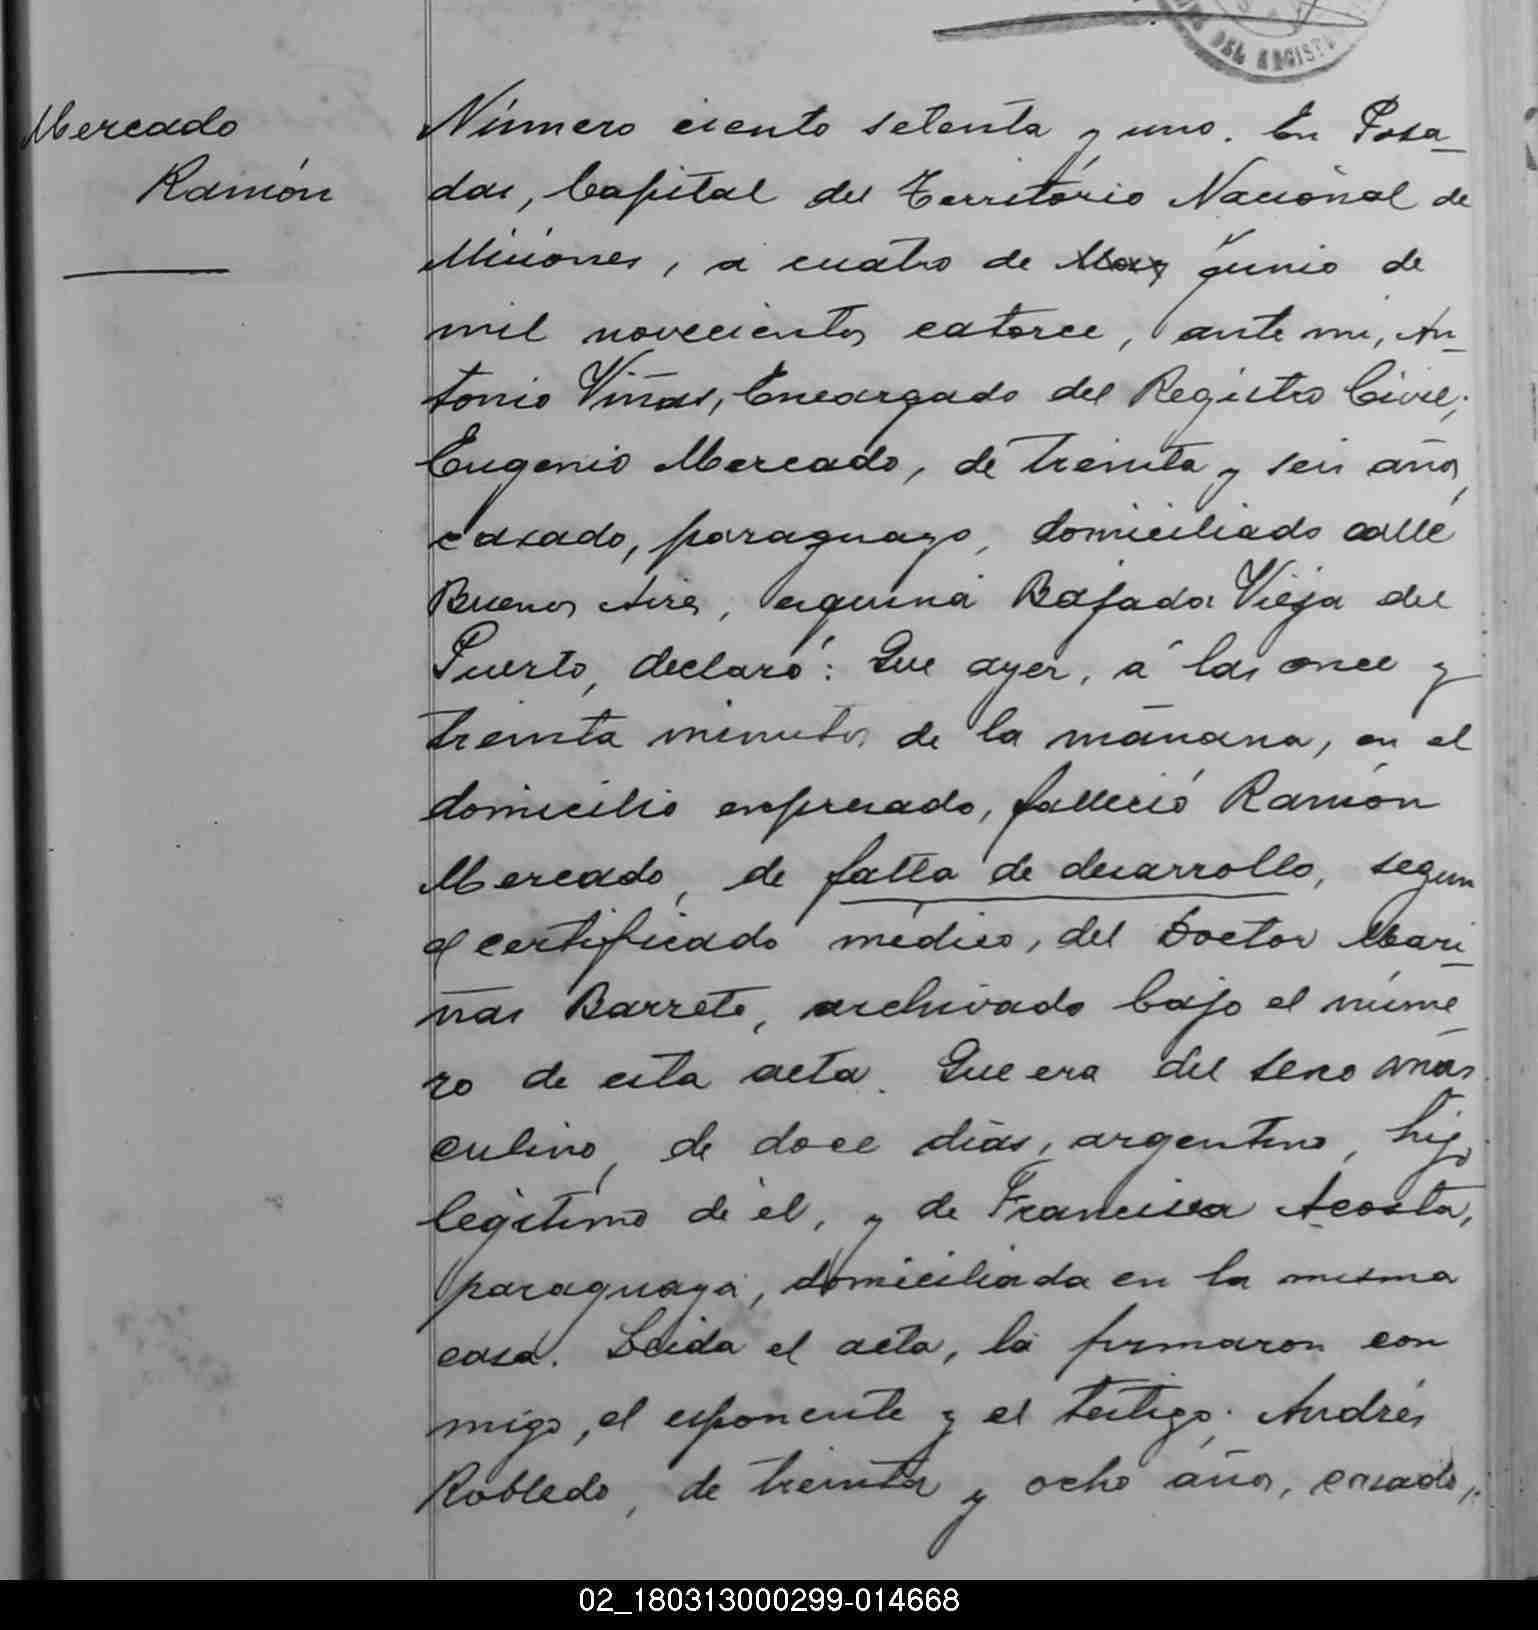 DEL REGISTR
Mercado
Ramón
Número ciento setenta y uno. En Posa-
das, Capital del Territorio Nacional de
Misiones, a cuatro de May Junio de
mil novecientos catorce, ante mi, An-
tonio Viñas, Encargado del Registro Civil;
Eugenio Mercado, de treinta y seis años,
casado, paraguayo, domiciliado calle
Buenos Aires, esquina Bajada Vieja del
Puerto, declaró: Que ayer, á las once y
treinta minutos de la mañana, en el
domicilio expresado, falleció Ramón
Mercado, de falta de desarrollo, segun
el certificado médico, del Doctor Mari-
ñas Barreto, archivado bajo el núme-
ro de esta acta. Que era del sexo mas
culino, de doce dias, argentino, hijo
legítimo de él, y de Francisca Acosta,
paraguaya, domiciliada en la misma
casa. Leida el acta, la firmaron con
migo, el esponente y el testigo: Andrés
Robledo, de treinta y ocho años, casado,
02_180313000299-014668